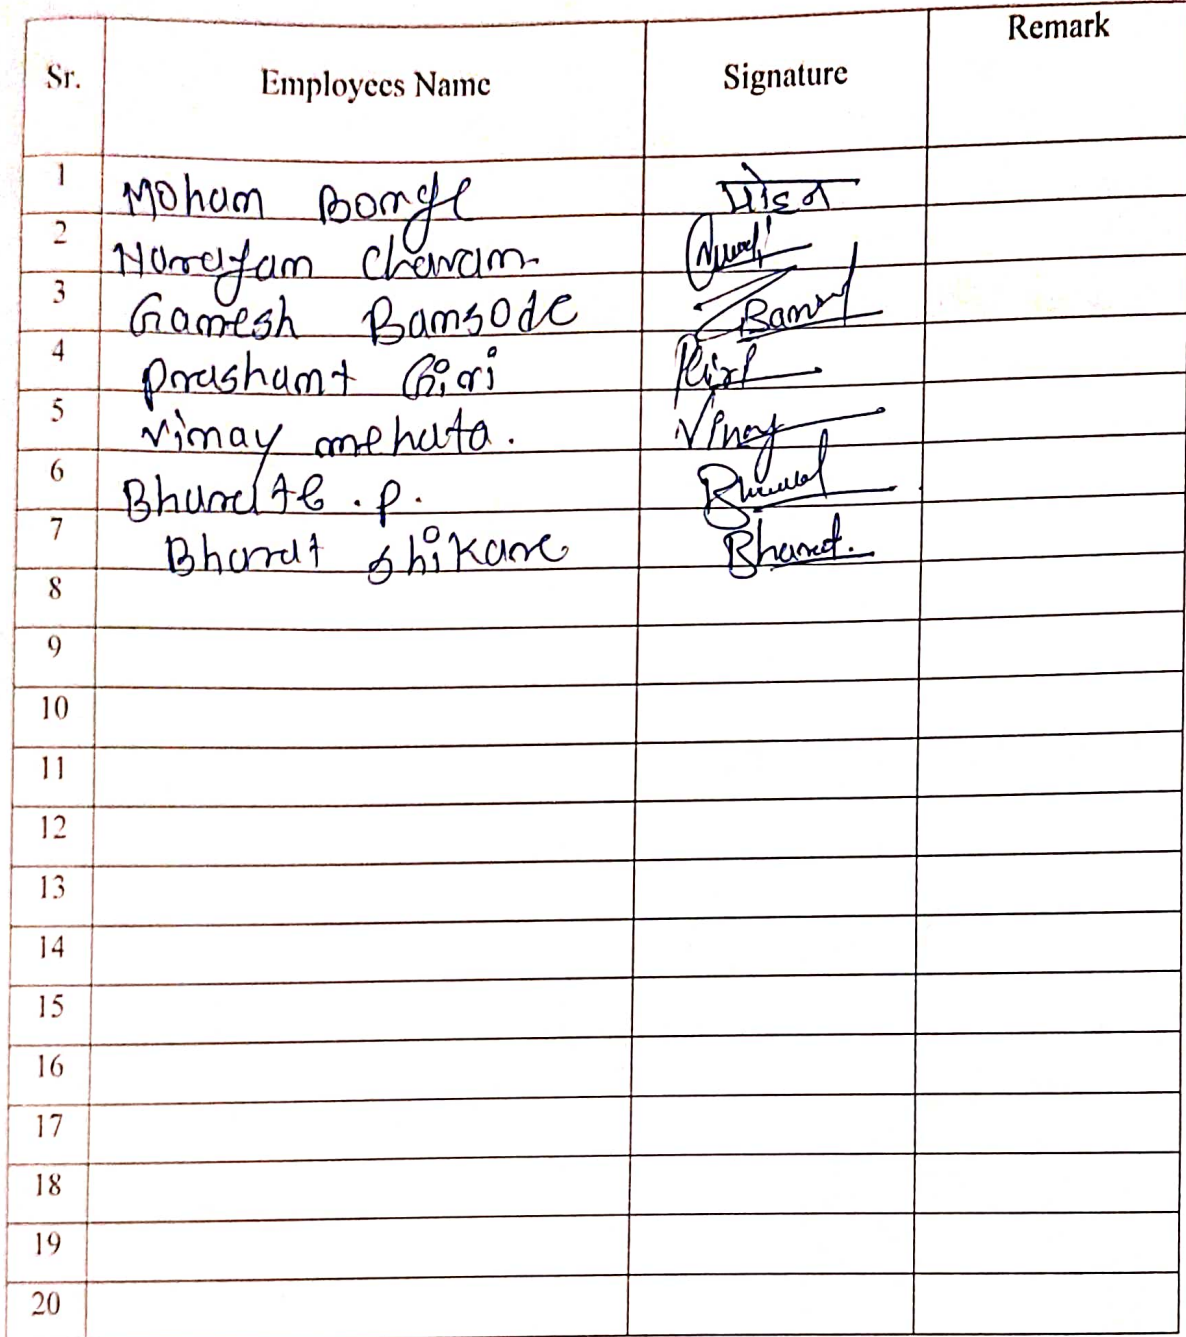 Sr. Employees Name Signature Remark
1 Mohan Bongе मोहन
2 Narayan Chavan
3 Ganesh Bansode Bansod
4 Prashant Giri Giri
5 Vinay mehata. Vinay
6 P.
7 Bharat Shikare Bharat.
8
9
10
11
12
13
14
15
16
17
18
19
20